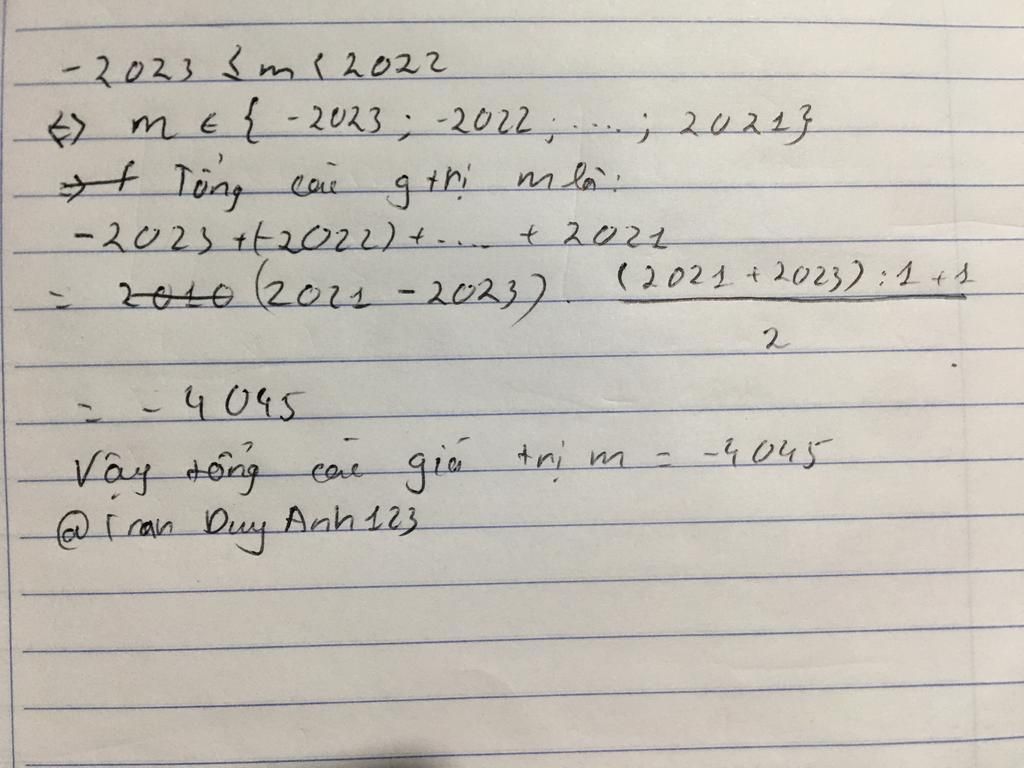 -2023 ≤ m < 2022
<=> m ∈ { -2023 ; -2022 ; .... ; 2021}
Tổng các g trị m là:
-2023 + (-2022) + .... + 2021
= (2021 - 2023) . ((2021 + 2023) : 1 + 1) / 2
= - 4045
Vậy tổng các giá trị m = -4045
@Tran Duy Anh123